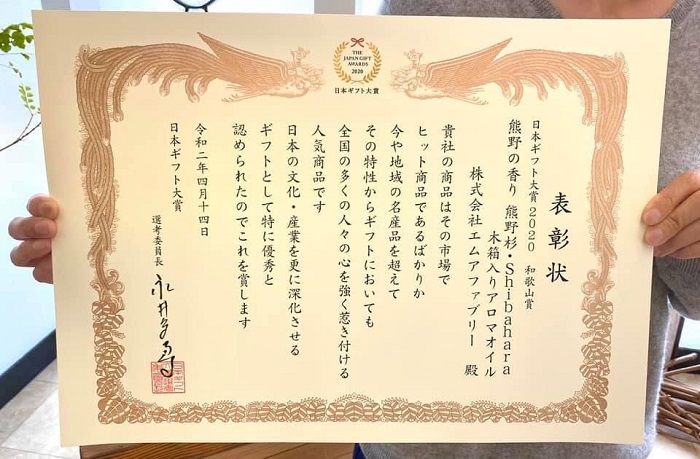 THE
JAPAN GIFT
AWARDS
2020
日本ギフト大賞
表彰状
日本ギフト大賞2020 和歌山賞
熊野の香り 熊野杉・Shibahara
木箱入りアロマオイル
株式会社エムアファブリー 殿
貴社の商品はその市場で
ヒット商品であるばかりか
今や地域の名産品を超えて
その特性からギフトにおいても
全国の多くの人々の心を強く惹き付ける
人気商品です
日本の文化・産業を更に深化させる
ギフトとして特に優秀と
認められたのでこれを賞します
令和二年四月十四日
日本ギフト大賞
選考委員長